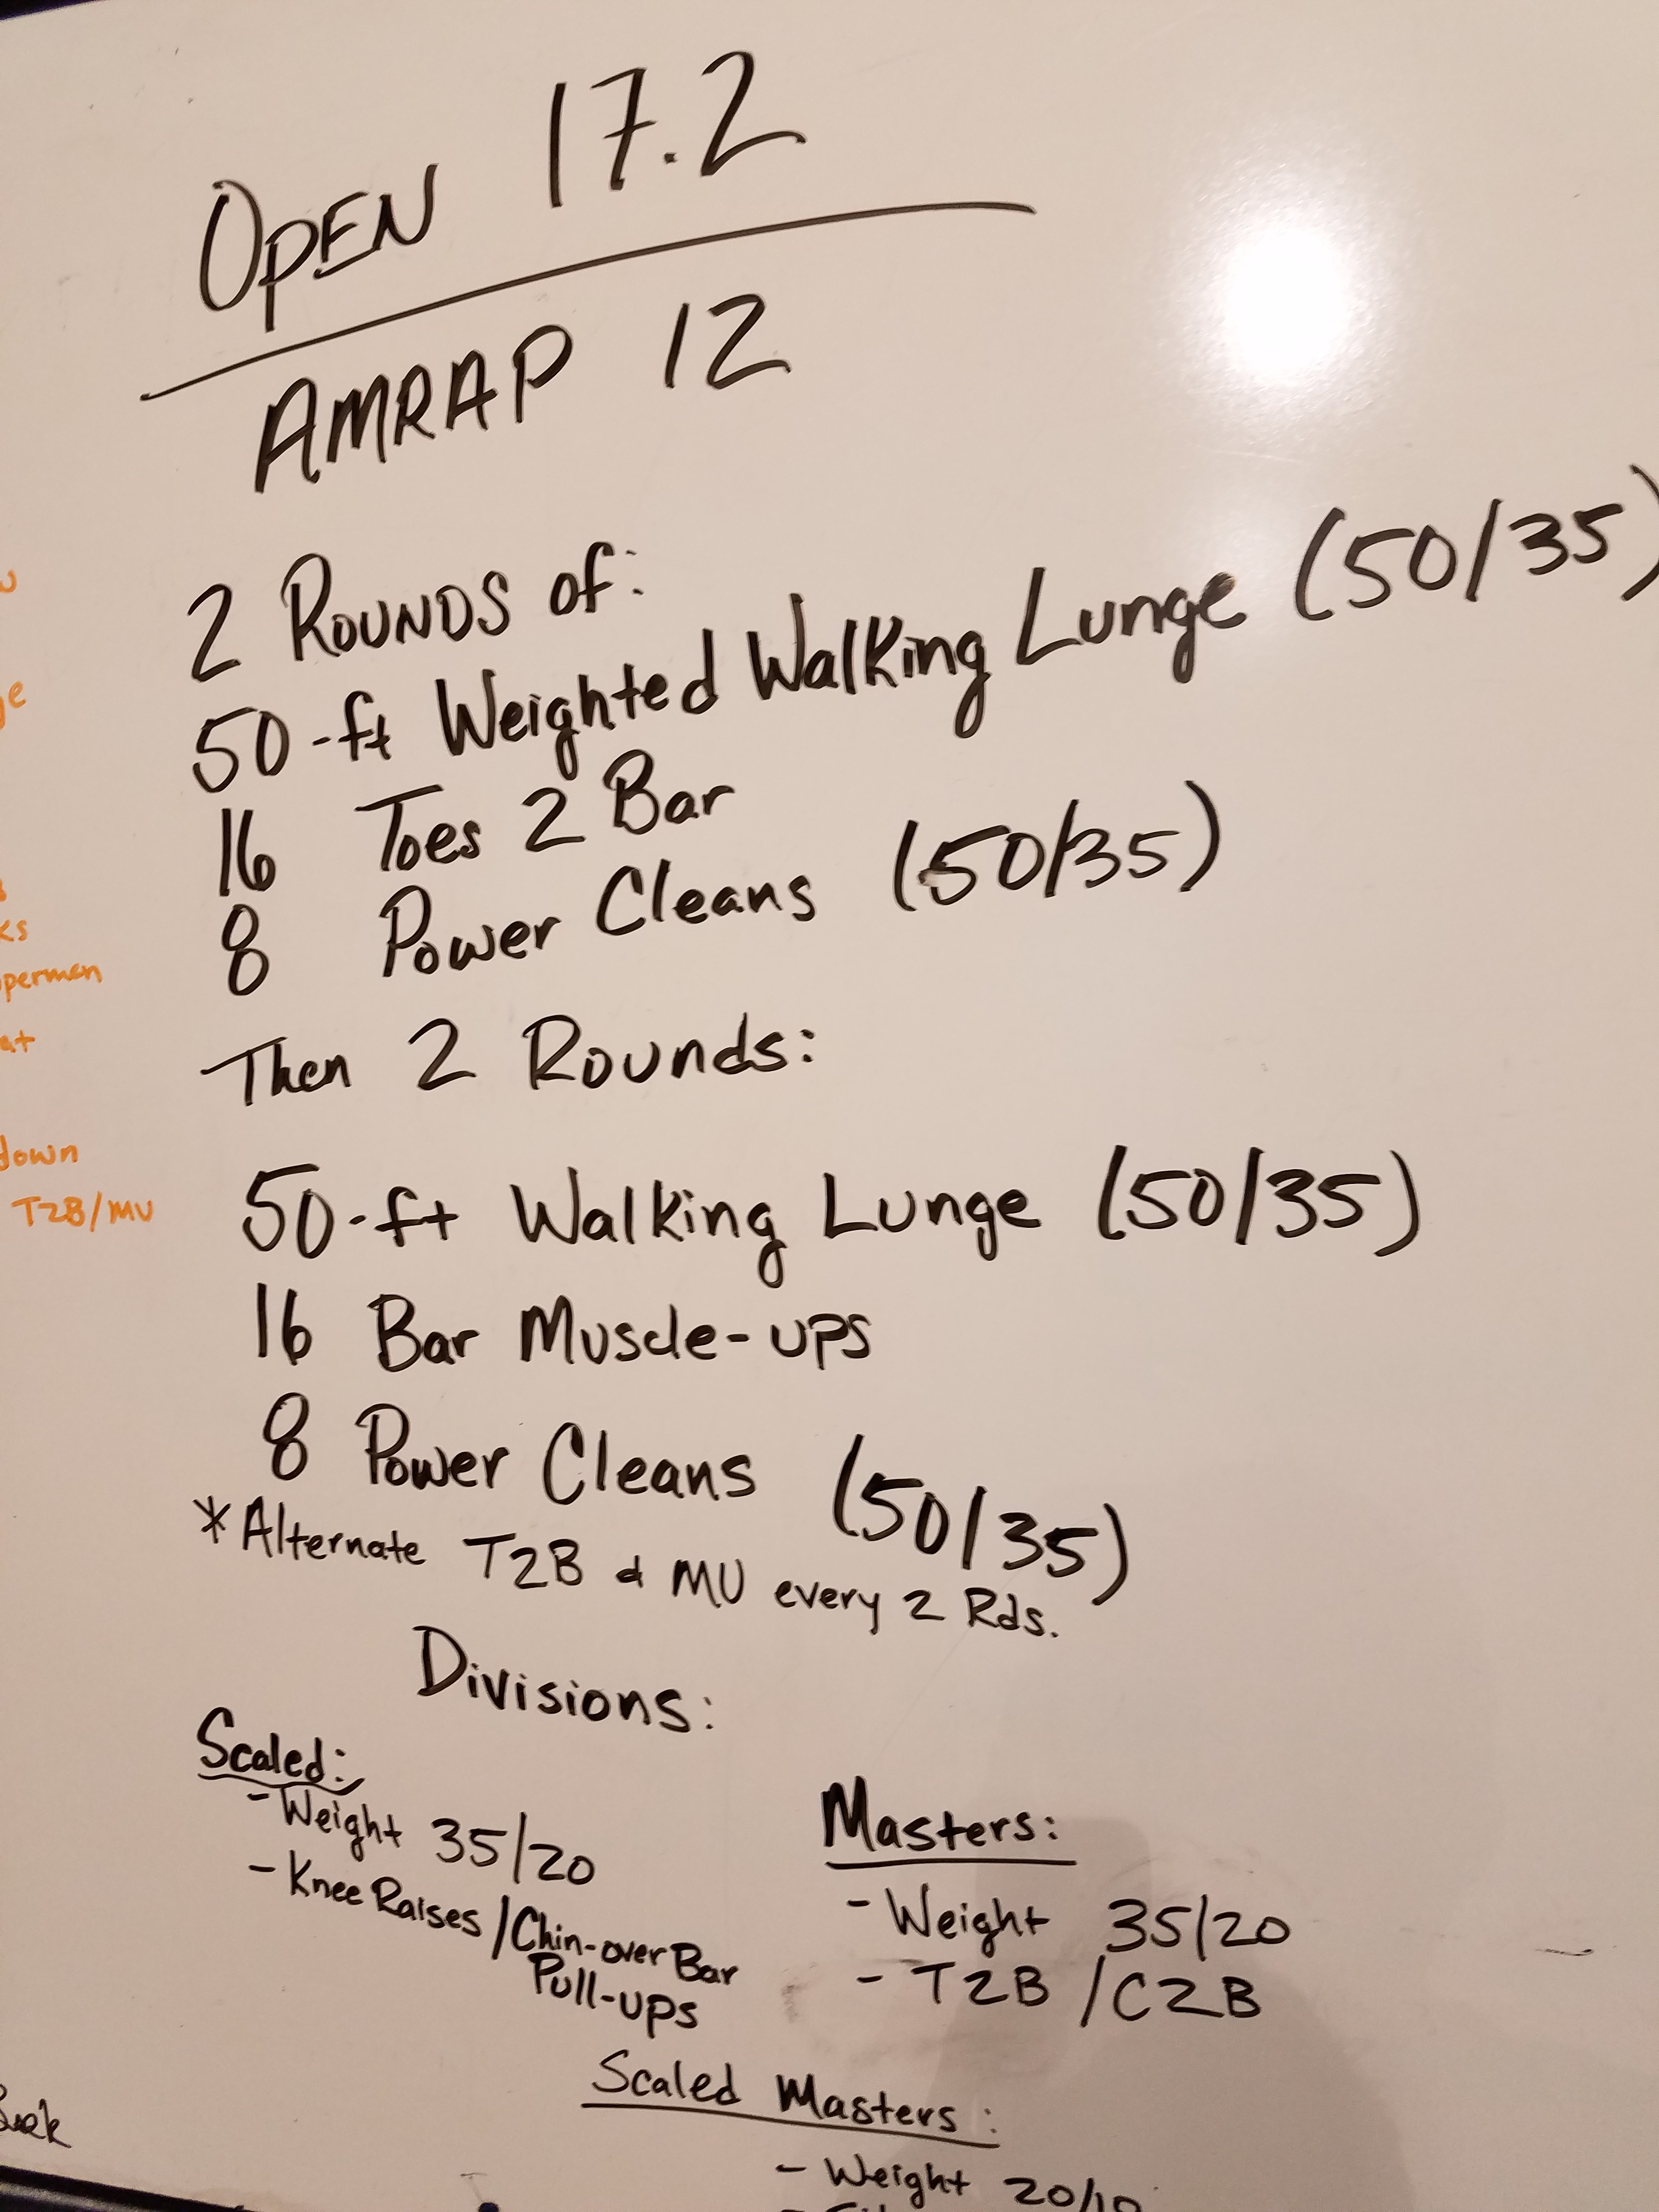 OPEN 17.2
AMRAP 12
2 ROUNDS of:
50-ft Weighted Walking Lunge (50/35)
16 Toes 2 Bar
8 Power Cleans (50/35)
Then 2 Rounds:
50-ft Walking Lunge (50/35)
16 Bar Muscle-ups
8 Power Cleans (50/35)
*Alternate T2B & MU every 2 Rds.
Divisions:
Scaled:
- Weight 35/20
- Knee Raises / Chin-over Bar
Pull-ups
Masters:
- Weight 35/20
- T2B / C2B
Scaled Masters:
- Weight 20/10
ge
ks
permen
at
down
T2B/MU